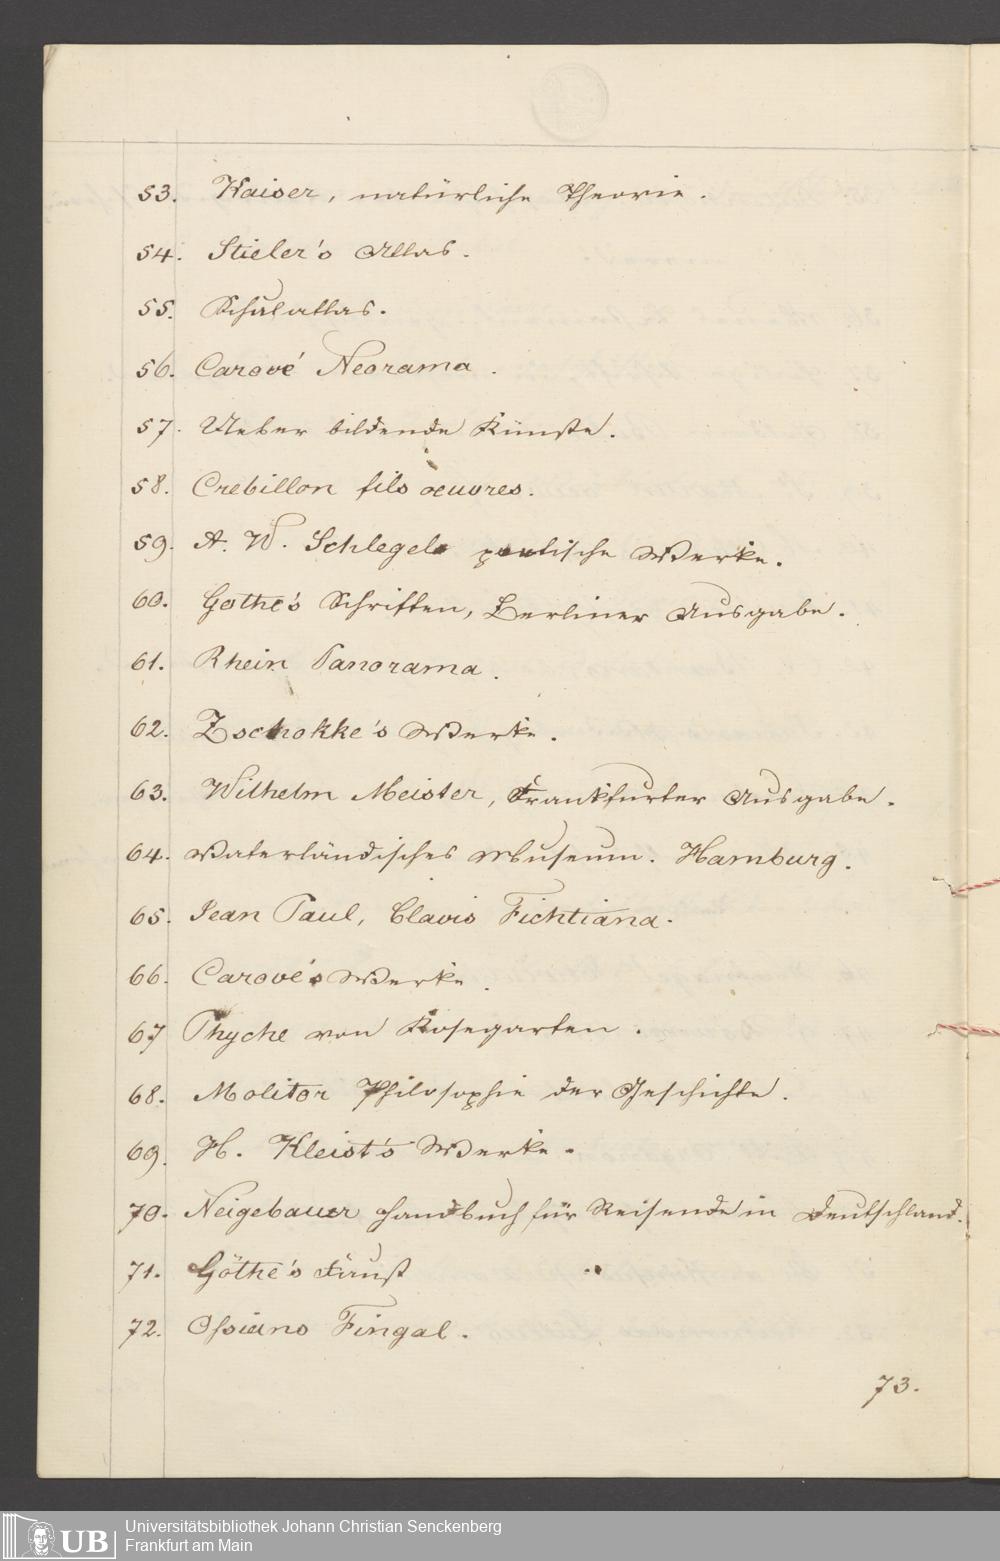 53. Kaiser, natürliche Theorie.
54. Stieler's Atlas.
55. Schulatlas.
56. Carové Neorama.
57. Ueber bildende Künste.
58. Crebillon fils oeuvres.
59. A. W. Schlegels poetische Werke.
60. Gothe's Schriften, Berliner Ausgabe.
61. Rhein Panorama.
62. Zschokke's Werke.
63. Wilhelm Meister, Frankfurter Ausgabe.
64. Vaterländisches Museum. Hamburg.
65. Jean Paul, Clavis Fichtiana.
66. Carové's Werke.
67 Thyche von Kosegarten.
68. Molitor Philosophie der Geschichte.
69. H. Kleist's Werke.
70. Neigebauer Handbuch für Reisende in Deutschland.
71. Göthe's Faust
72. Ossians Fingal.
73.
UB
Universitätsbibliothek Johann Christian Senckenberg
Frankfurt am Main